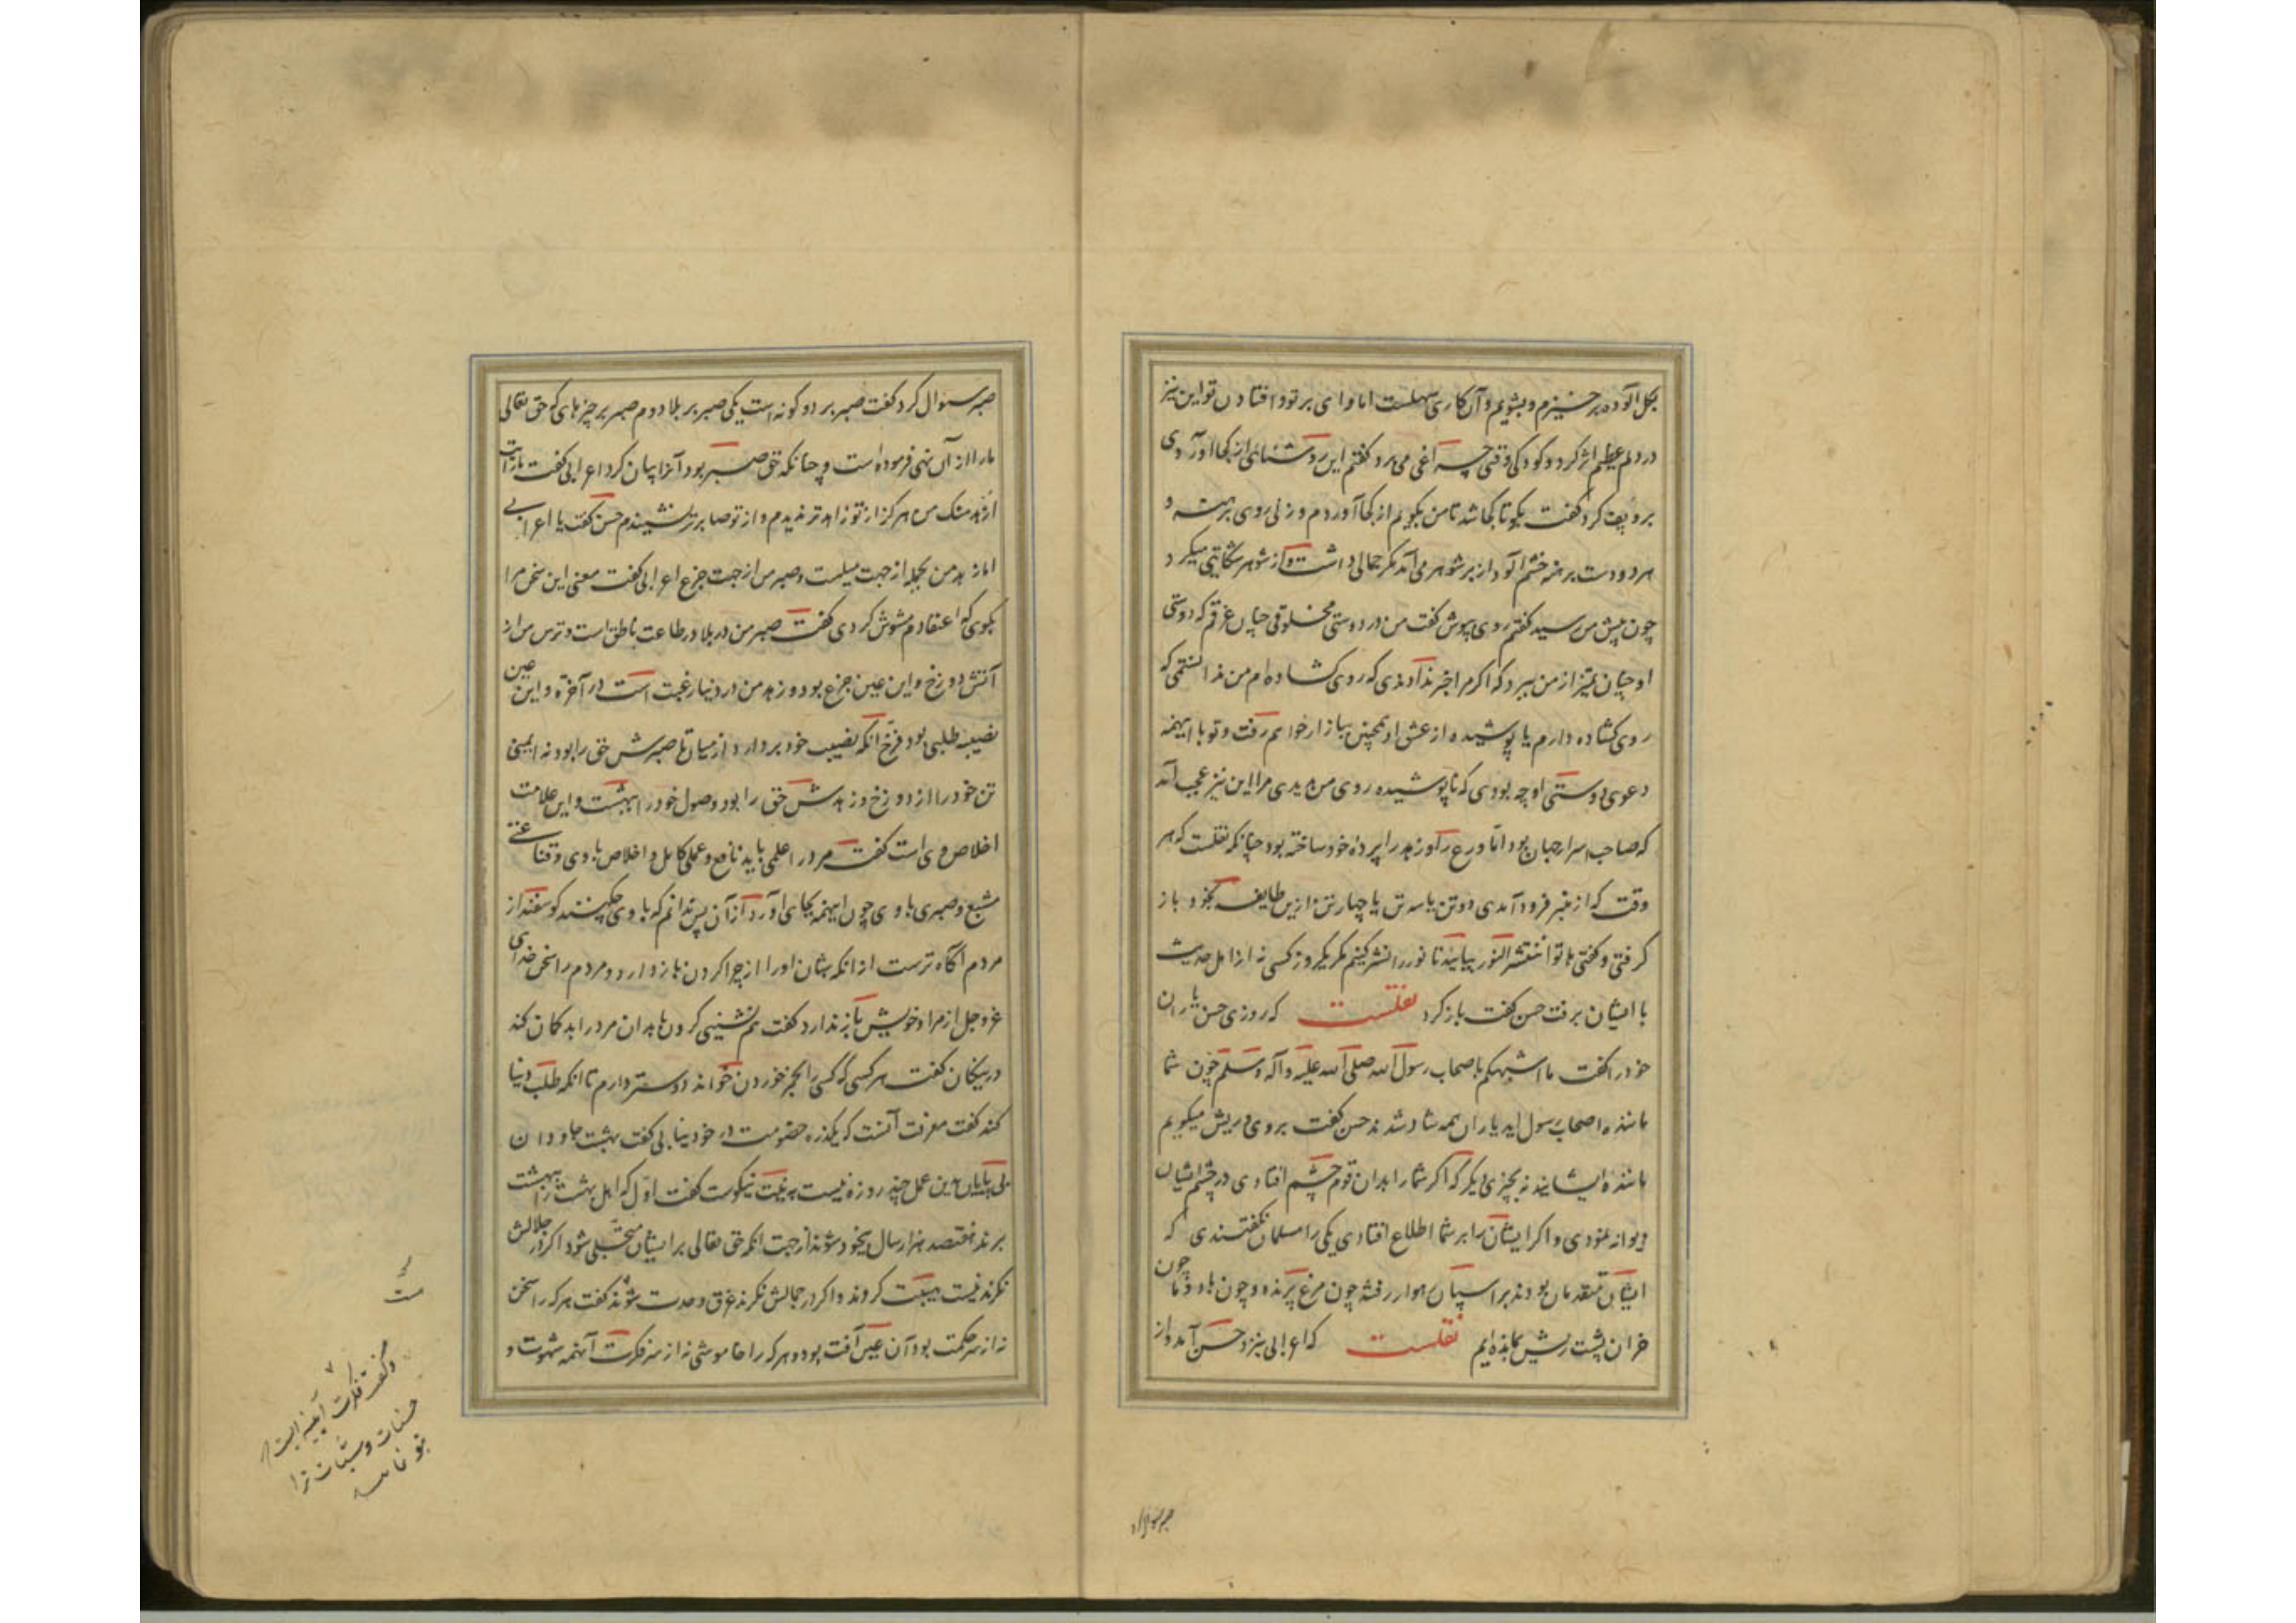 بگل آلوده برخیزم و بشویم و آن کاری سهلست اما وای بر تو و افتادن تو این نیز
در دلم عظیم اثر کرد و کودکی وقتی چراغی می برد گفتم این روشنائی از کجا آوردی
برو پف کرد گفت بگو تا کجا شد تا من بگویم از کجا آوردم و زنی روی برهنه و
هر دو دست برهنه خشم آلود از بر شوهر می آمد مگر جمالی داشت و از شوهر شکایتی میکرد
چون پیش من رسید گفتم روی بپوش گفت من در دوستی مخلوقی چنان غرقم که دوستی
او چنان تمیز از من ببرد که اگر مرا خبر ندادیدی که روی گشاده ام من ندانستمی که
روی گشاده دارم یا پوشیده از عشق او همچنین ببازار خواستم رفت و تو با اینهمه
دعوی دوستی او چه بودی که ناپوشیده روی من ندیدی مرا این نیز عجب آمد
که صاحب اسرار جهان بود اما ورع را و زهد را پرده خود ساخته بود چنانکه نقلست که هر
وقت که از منبر فرود آمدی دو تن یا سه تن یا چهار تن ازین طایفه بخود باز
گرفتی و گفتی هاتوا ننتشر النور بیائید تا نور را نشر کنیم مگر یکروز کسی نه از اهل حدیث
با ایشان برفت حسن گفت بازگرد نقلست که روزی حسن یاران
خود را گفت ما اشبهکم باصحاب رسول الله صلی الله علیه وآله وسلم چون شما
ماننده اصحاب رسول اید یاران همه شاد شدند حسن گفت بروی و ریش میگویم
ماننده ایشانید نه بچیزی دیگر که اگر شما را بدان قوم چشم افتادی در چشم ایشان
دیوانه نمودی و اگر ایشان را بر شما اطلاع افتادی یکی را مسلمان نگفتندی که
ایشان متقدمان بودند بر اسپان رهوار رفته چون مرغ پرنده و چون باد و ما چون
خران پشت ریش بمانده ایم نقلست که اعرابی نزد حسن آمد و از
صبر سوال کرد
صبر سوال کرد گفت صبر بر دو گونه است یکی صبر بر بلا دوم صبر بر چیزهای که حق تعالی
ما را از آن نهی فرموده است و چنانکه حق صبر بود آنرا بیان کرد اعرابی گفت ما رأیت
ازهد منک من هرگز از تو زاهدتر ندیدم و از تو صابرتر نشنیدم حسن گفت یا اعرابی
اما زهد من بجمله از جهت میلست و صبر من از جهت جزع اعرابی گفت معنی این سخن مرا
بگوی که اعتقادم مشوش کردی گفت صبر من در بلا و در طاعت ناطق است و ترس من از
آتش دوزخ و این عین جزع بود و زهد من در دنیا رغبت است در آخرة و این عین
نصیب طلبی بود فرخ آنکه نصیب خود بردارد از میان تا صبرش حق را بود نه ایمنی
تن خود را از دوزخ و زهدش حق را بود وصول خود را ببهشت و این علامت
اخلاص وی است گفت مرد را علمی باید نافع و عملی کامل و اخلاص با وی و قناعتی
مشبع و صبری با وی چون اینهمه بجای آورد از آن پس ندانم که با وی چکنند گوسفند از
مردم آگاه ترست از انکه شبان او را از چرا کردن باز دارد و مردم را سخن خدای
عز و جل از مراد خویش باز ندارد گفت همنشینی کردن با بدان مرد را بدگمان کند
در نیکان گفت هر کسی که کسی را بخمر خوردن خواند دوستر دارم تا انکه طلب دنیا
کند گفت معرفت آنست که یکذره خصومت در خود نیابی گفت بهشت جاودان
بی پایان بدین عمل چند روزه نیست به نیت نیکوست گفت اول که اهل بهشت را ببهشت
برند هفتصد هزار سال بیخود شوند از جهت انکه حق تعالی بر ایشان متجلی شود اگر در جلالش
نگرند نیست هیبت گردند و اگر در جمالش نگرند غرق وحدت شوند گفت هر که را سخن
نه از سر حکمت بود آن عین آفت بود و هر که را خاموشی نه از سر فکرت آنهمه شهوت و
و گفت فکرت آیینه ایست
حسنات و سیئات ترا
بتو نماید